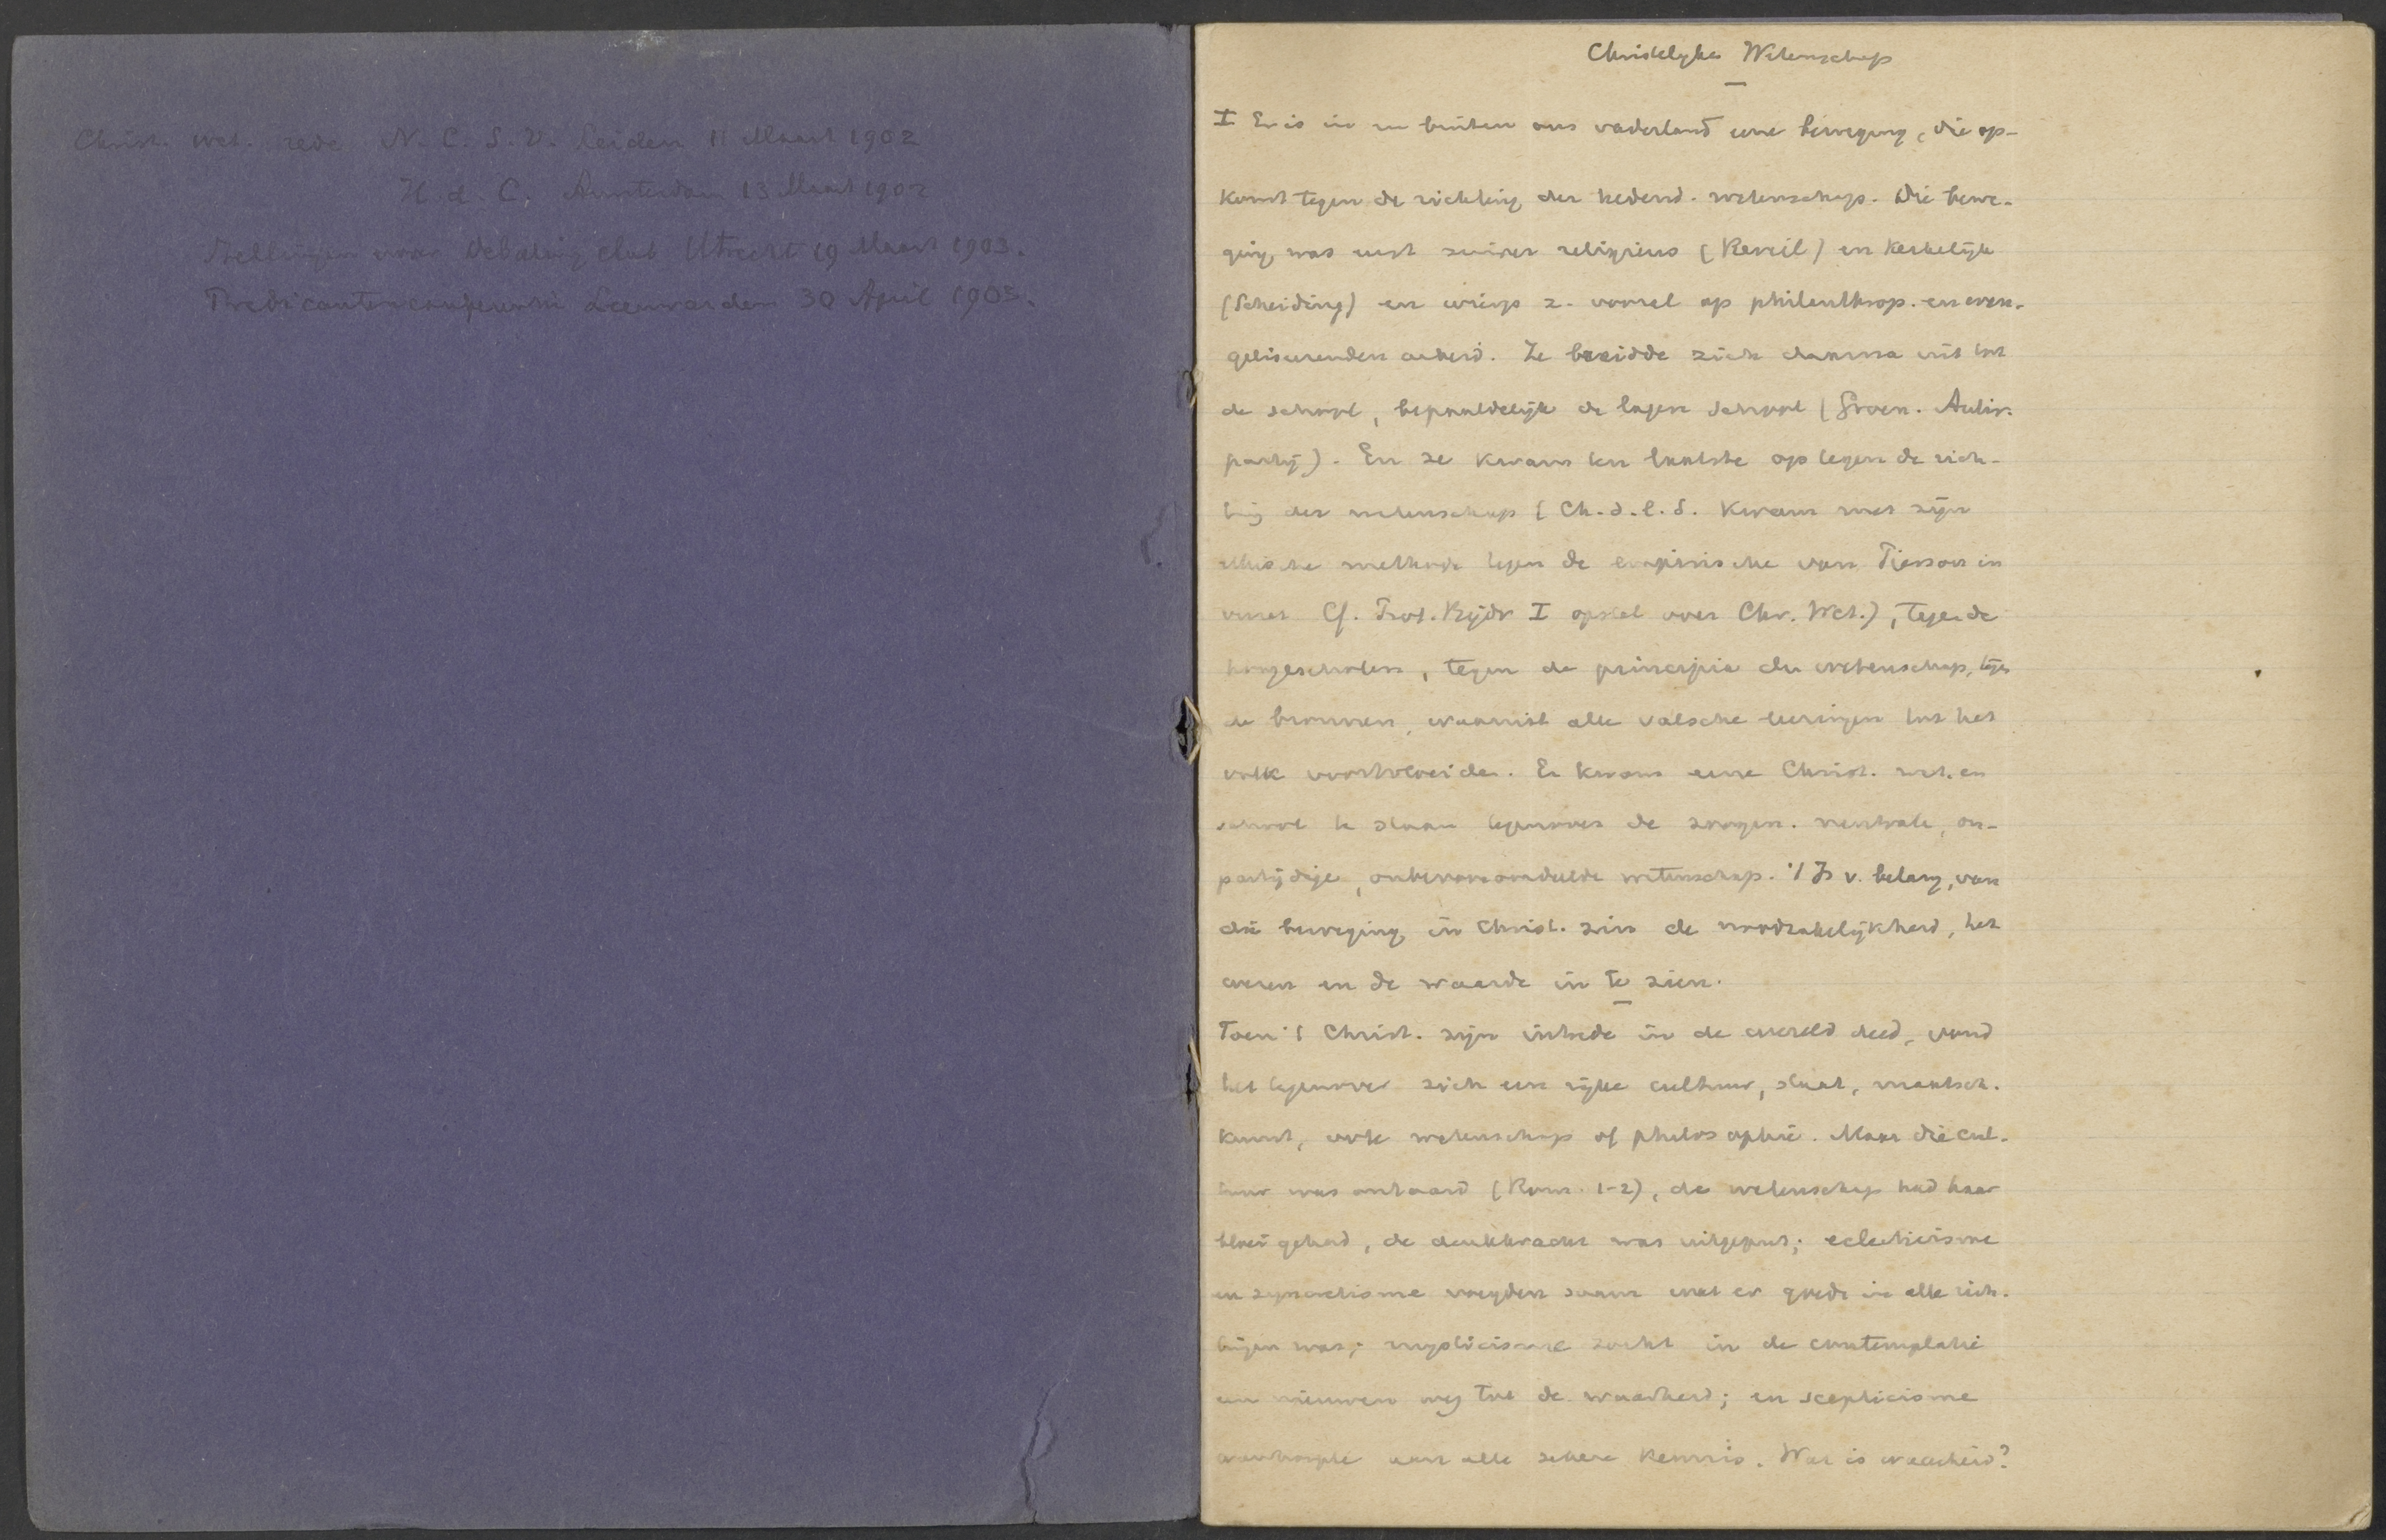 Christ. wet. rede N.C.S.V. Leiden 11 Maart 1902
H.d.C. Amsterdam 13 Maart 1902
Stellingen voor Debating club Utrecht 19 Maart 1903.
Predicantenconferentie Leeuwarden 30 April 1903.
Christelyke Wetenschap
I Er is in en buiten ons vaderland eene beweging, die op-
komt tegen de richting der hedend. wetenschap. Die bewe-
ging was eerst zuiver religieus (Reveil) en kerkelijk
(Scheiding) en wierp z. vooral op philanthrop. en evan-
geliseerenden arbeid. Ze breidde zich daarna uit tot
de school, bepaaldelijk de lagere school (Groen. Antir.
partij). En ze kwam ten laatste op tegen de rich-
ting der wetenschap (Ch.d.l.S. kwam met zijn
ethische methode tegen de empirische van Pierson in
verzet Cf. Prot. Bijdr I opstel over Chr. Wet.), tegen de
hoogescholen, tegen de principia der wetenschap, tegen
de bronnen, waaruit alle valsche leeringen tot het
volk voortvloeiden. Er kwam eene Christ. wet. en
school te staan tegenover de zoogen. neutrale, on-
partijdige, onbevooroordeelde wetenschap. 't Is v. belang, van
die beweging in Christ. zin de noodzakelijkheid, het
wezen en de waarde in te zien.
Toen 't Christ. zijn intrede in de wereld deed, vond
het tegenover zich een rijke cultuur, staat, maatsch.
kunst, ook wetenschap of philosophie. Maar die cul-
tuur was ontaard (Rom. 1-2), de wetenschap had haar
bloei gehad, de denkkracht was uitgeput; eclecticisme
en syncretisme voegden saam wat er goeds in alle rich-
tingen was; mysticisme zocht in de contemplatie
een nieuwen weg tot de waarheid; en scepticisme
wanhoopte aan alle zekere kennis. Wat is waarheid?